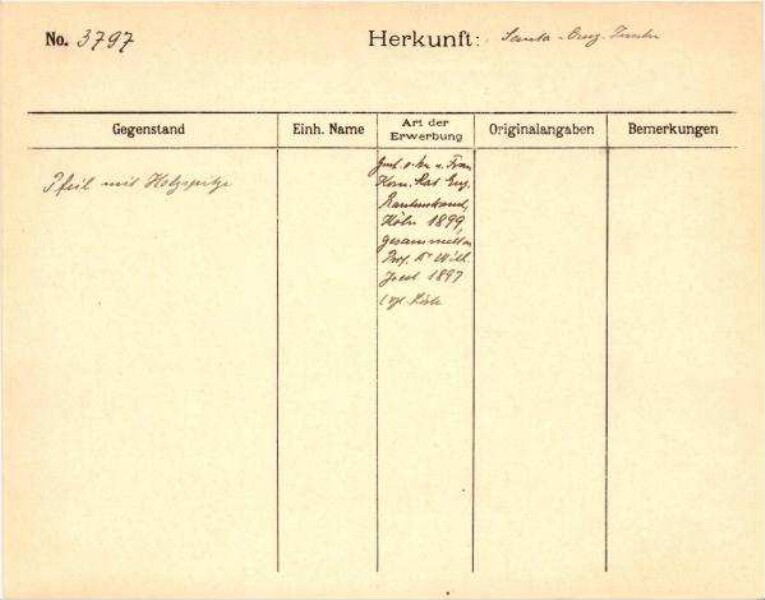 No. 3797
Herkunft: Santa-Cruz-Inseln
Gegenstand
Einh. Name
Art der
Erwerbung
Originalangaben
Bemerkungen
Pfeil mit Holzspitze
v. Frau
Kom. Rat Eug.
Rautenstrauch,
Köln 1899,
gesammelt v.
Prof. Dr Wilh.
Joest 1897
(vgl. Liste